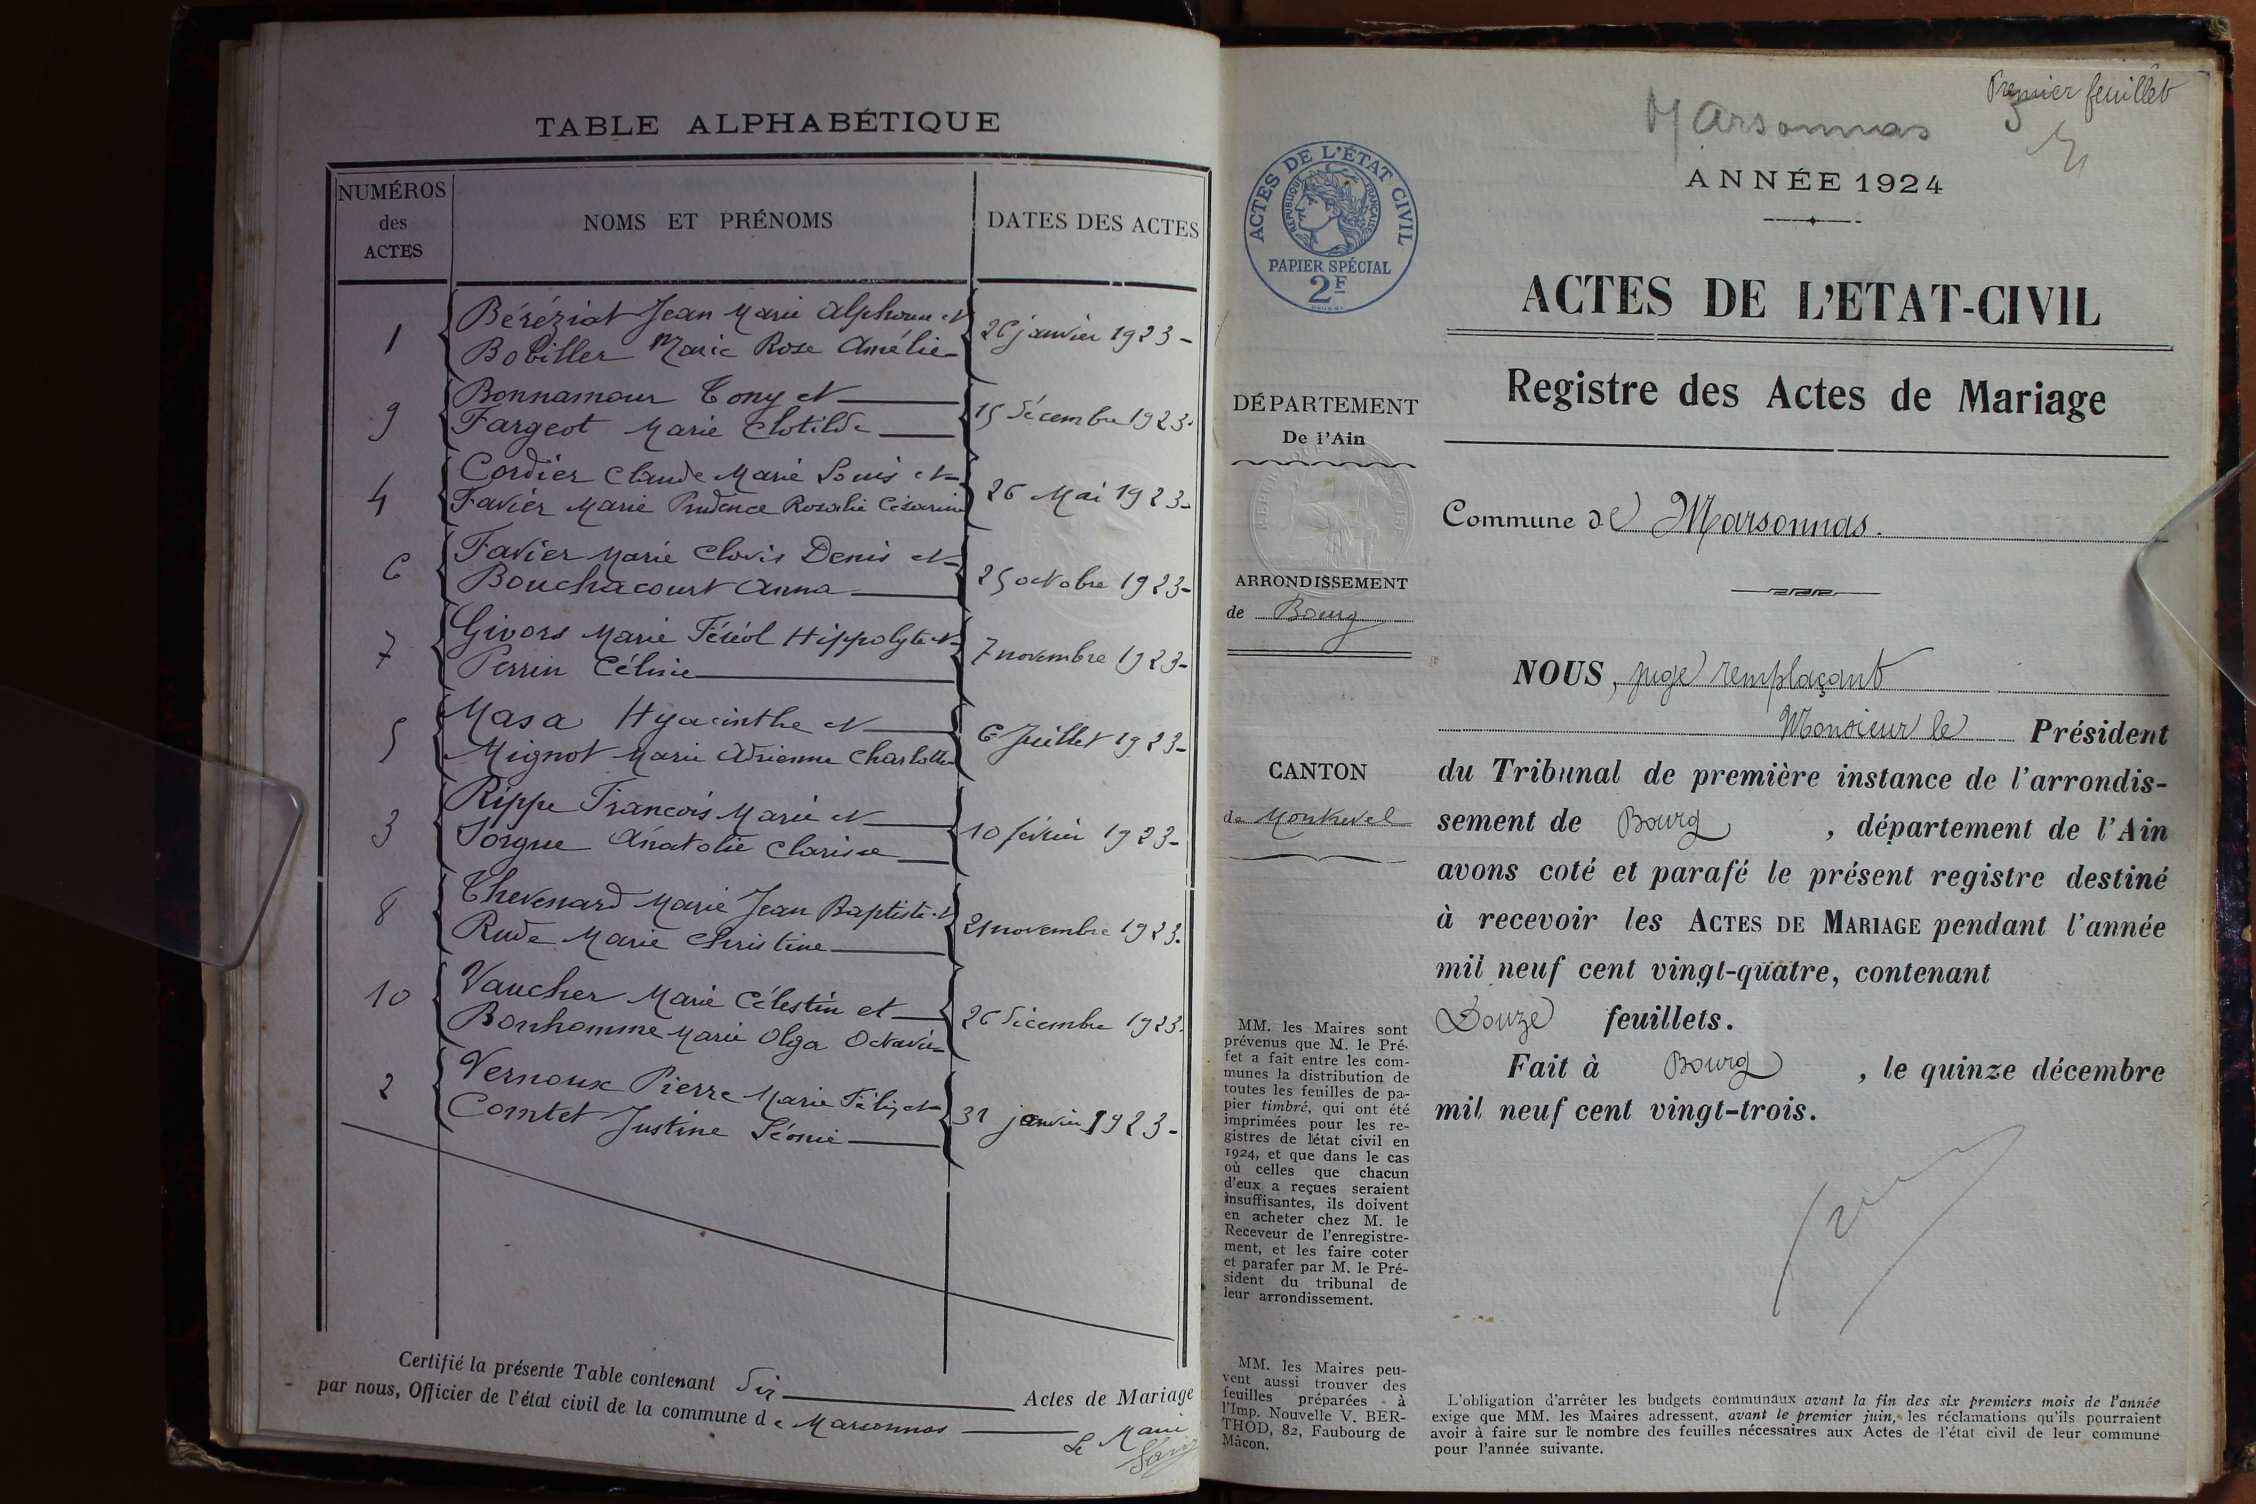 TABLE ALPHABÉTIQUE
NUMÉROS
des
ACTES
NOMS ET PRÉNOMS
DATES DES ACTES
1
Béréziat Jean Marie Alphonse et
Bobiller Marie Rose Amélie
26 janvier 1923-
9
Bonnamour Tony et
Fargeot Marie Clotilde
15 décembre 1923-
4
Cordier Claude Marie Louis et
Favier Marie Prudence Rosalie Césarine
26 Mai 1923-
6
Favier Marie Clovis Denis et
Bouchacourt Anna
25 octobre 1923-
7
Givors Marie Féréol Hippolyte et
Perrin Céline
7 novembre 1923-
5
Masa Hyacinthe et
Mignot Marie Adrienne Charlotte
6 Juillet 1923-
3
Rippe François Marie et
Sorgue Anatolie Clarisse
10 février 1923-
8
Thevenard Marie Jean Baptiste et
Rude Marie Christine
21 novembre 1923.
10
Vaucher Marie Célestin et
Bonhomme Marie Olga Octavie
26 décembre 1923.
2
Vernoux Pierre Marie Félix et
Comtet Justine Léonie
31 janvier 1923-
Certifié la présente Table contenant Dix Actes de Mariage
par nous, Officier de l'état civil de la commune de Marsonnas
Le Maire
Premier feuillet
Marsonnas
ANNÉE 1924
ACTES DE L'ÉTAT CIVIL
RÉPUBLIQUE FRANÇAISE
PAPIER SPÉCIAL
2F
ACTES DE L'ETAT-CIVIL
Registre des Actes de Mariage
DÉPARTEMENT
De l'Ain
Commune de Marsonnas.
ARRONDISSEMENT
de Bourg
CANTON
de Montrevel
NOUS, juge remplaçant
Monsieur le Président
du Tribunal de première instance de l'arrondis-
sement de Bourg, département de l'Ain
avons coté et parafé le présent registre destiné
à recevoir les ACTES DE MARIAGE pendant l'année
mil neuf cent vingt-quatre, contenant
Douze feuillets.
Fait à Bourg, le quinze décembre
mil neuf cent vingt-trois.
MM. les Maires sont
prévenus que M. le Pré-
fet a fait entre les com-
munes la distribution de
toutes les feuilles de pa-
pier timbré, qui ont été
imprimées pour les re-
gistres de l'état civil en
1924, et que dans le cas
où celles que chacun
d'eux a reçues seraient
insuffisantes, ils doivent
en acheter chez M. le
Receveur de l'enregistre-
ment, et les faire coter
et parafer par M. le Pré-
sident du tribunal de
leur arrondissement.
MM. les Maires peu-
vent aussi trouver des
feuilles préparées à
l'Imp. Nouvelle V. BER-
THOD, 82, Faubourg de
Mâcon.
L'obligation d'arrêter les budgets communaux avant la fin des six premiers mois de l'année
exige que MM. les Maires adressent, avant le premier juin, les réclamations qu'ils pourraient
avoir à faire sur le nombre des feuilles nécessaires aux Actes de l'état civil de leur commune
pour l'année suivante.